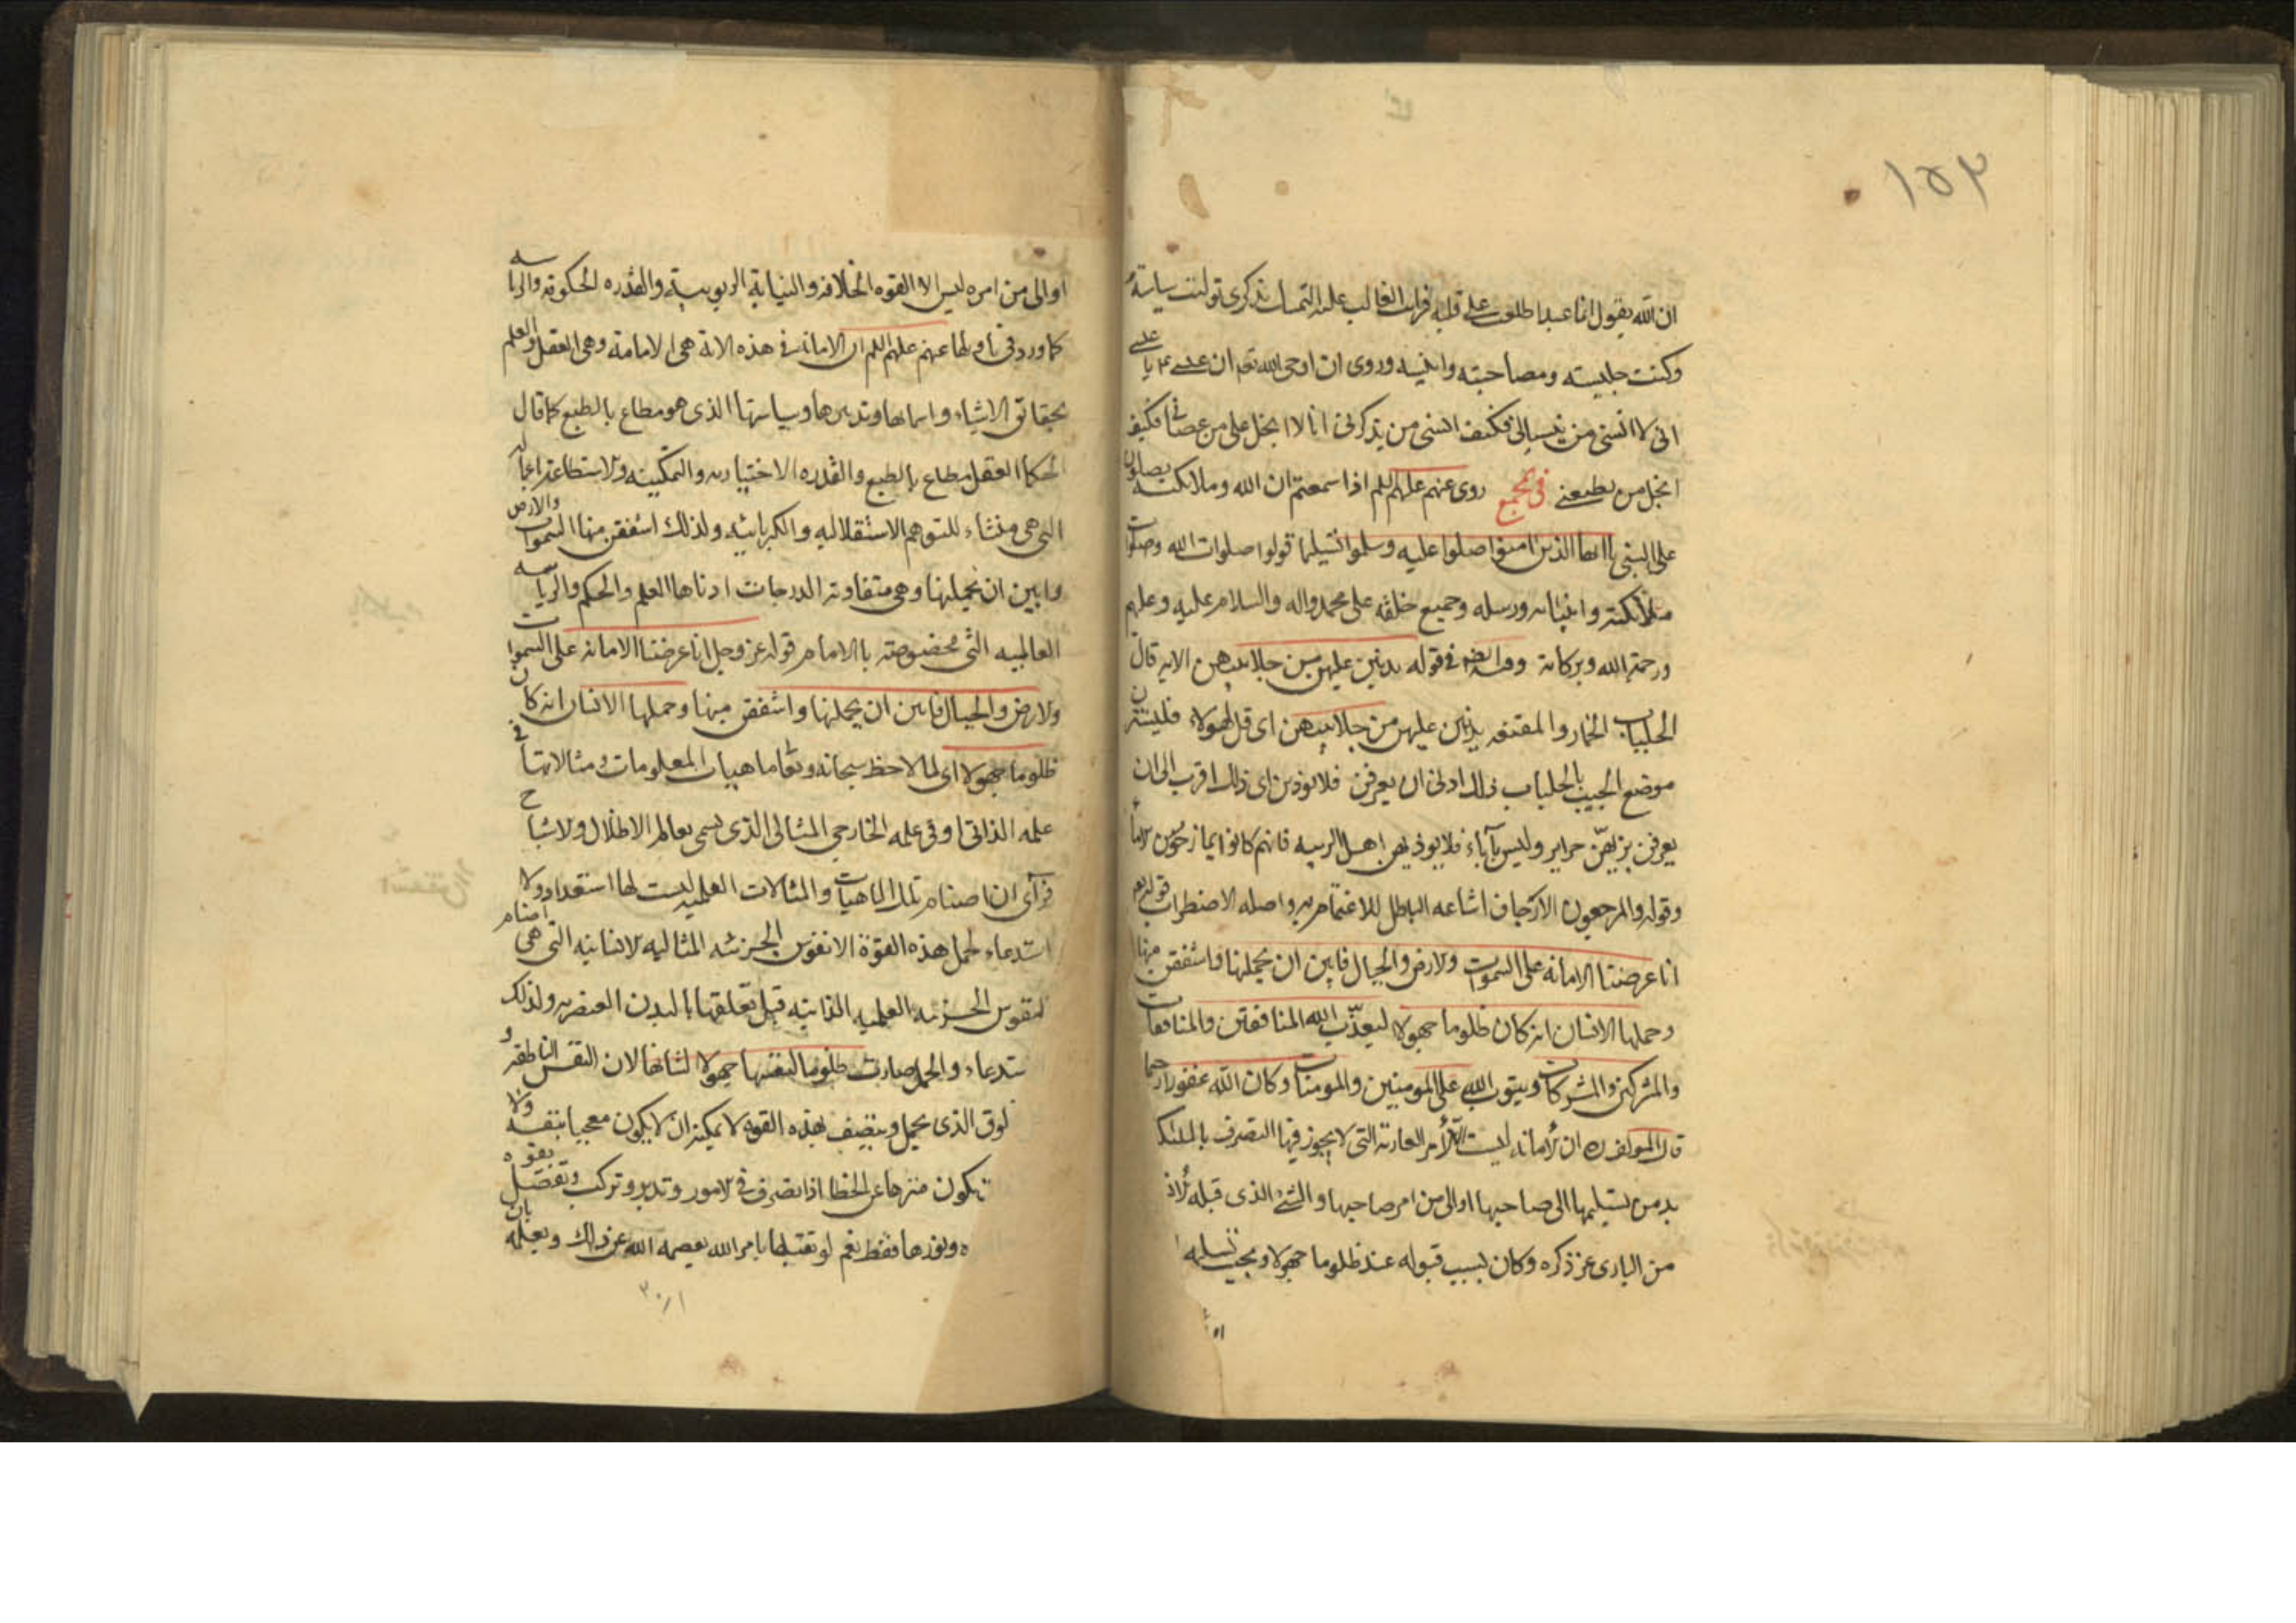 ١٥٣
ان الله يقول انما عبد اطلعت على قلبه فرايت الغالب عليه التمسك بذكرى توليت سياسته
وكنت جليسه ومصاحبته وانيسه وروى ان اوحى الله تعم ان عيسى ع يا عيسى
انى لا انسى من ينسانى فكيف انسى من يذكرنى انا لا ابخل على من عصانى فكيف
ابخل من يطيعنى فى مجمع روى عنهم عليهم السلم اذا سمعتم ان الله وملائكته يصلون
على النبى يا ايها الذين امنوا صلوا عليه وسلموا تسليما قولوا صلوات الله وصلوات
ملائكته وانبيائه ورسله وجميع خلقه على محمد واله والسلام عليه وعليهم
ورحمة الله وبركاته وفيه ايضا فى قوله يدنين عليهن من جلابيبهن الايه قال
الجلباب الخمار والمقنعه يدنين عليهن من جلابيبهن اى قل لهولاء فليسترن
موضع الجيب بالجلباب ذلك ادنى ان يعرفن فلا يوذين اى ذلك اقرب الى ان
يعرفن بزيهن حراير وليس بآماء فلا يوذيهن اهل الريبه فانهم كانوا يمازحون الاماء
وقوله والمرجعون الارجاف اشاعه الباطل للاغتمام به واصله الاضطراب قوله تعم
انا عرضنا الامانه على السموات ولارض والجبال فابين ان يحملنها واشفقن منها
وحملها الانسان انه كان ظلوما جهولا ليعذب الله المنافقين والمنافقات
والمشركين والمشركات ويتوب الله على المومنين والمومنات وكان الله غفورا رحيما
قال المولف ره ان الامانه ليست الامر العاريه التى لا يجوز فيها التصرف بالملك
بد من تسليمها الى صاحبها او الى من امر صاحبها والشئ الذى قبله الان
من البارى عز ذكره وكان بسبب قبوله عند ظلوما جهولا ويجب تسليمه
او الى من امره ليس الا القوه الخلافه والنيابة الربوبيية والقدره الحكومة والرياسه
كما ورد فى تاويلها عنهم عليهم السلم ان الامانة فى هذه الاية هى الامامة وهى العقل والعلم
بحقائق الاشياء واسمائها وتدبيرها وسياستها الذى هو مطاع بالطبع كما قال
الحكما العقل مطاع بالطبع والقدره الاختياريه والتمكينه ولاستطاعة
التى هى منشاء للتوهم الاستقلاليه والكبريائيه ولذلك اشفقن منها السموات والارض
وابين ان يحملنها وهى متفاوتة الدرجات ادناها العلم والحكم والرياسه
العالميه التى مخصوصته بالامام قوله عز وجل انا عرضنا الامانه على السموات
ولارض والجبال فابين ان يحملنها واشفقن منها وحملها الانسان انه كان
ظلوما جهولا اى لما لاحظ سبحانه وتعا ماهيات المعلومات ومثالاتها فى
علمه الذاتى او فى علمه الخارجى المثالى الذى يسمى بعالم الاظلال ولاشباح
فرآى ان اصنام تلك الماهيات والمثالات العلميه ليست لها استعداد ولا
استدعاء لحمل هذه القوة الا نفوس الجزئيه المثاليه لانسانيه التى هى اصنام
لنفوس الجزئيه العلميه الذاتيه قبل تعلقها بالبدن العنصريه ولذلك
ستدعاء والحمل صارت ظلوما لنفسها جهولا لشانها لان النفس الناطقه
لوق الذى يحمل ويتصف بهذه القوه لا يمكنه ان لا يكون معجبا بنفسه ولا
يكون منزها عن الخطا اذا تصرف فى لامور وتدبير وتركيب وتفصيل بقوه
ه ونورها فقط نعم لو تقبلها بامر الله يعصمه الله عن ذلك ويعلمه بان